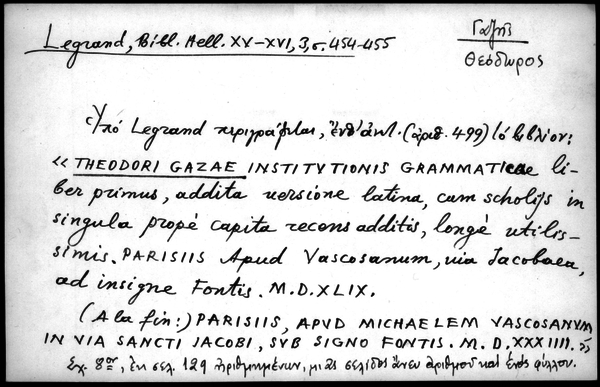 Legrand, Bibl. Hell. XV-XVI, 3, σ. 454-455
Γαζῆς
Θεόδωρος
Ὑπό Legrand περιγράφεται, (ἀριθ. 499) τό βιβλίον:
« THEODORI GAZAE INSTITVTIONIS GRAMMATICAE li-
ber primus, addita versione latina, cum scholijs in
singula propè capita recens additis, longè utilis-
simis. PARISIIS Apud Vascosanum, via Jacobaea,
ad insigne Fontis. M.D.XLIX.
(A la fin:) PARISIIS, APVD MICHAELEM VASCOSANVM
IN VIA SANCTI JACOBI, SVB SIGNO FONTIS. M. D. XXXIIII. »
Σχ. 8ον, ἐκ σελ. 129 ἠριθμημένων, μιᾶς σελίδος ἄνευ ἀριθμοῦ καί ἑνός φύλλου.